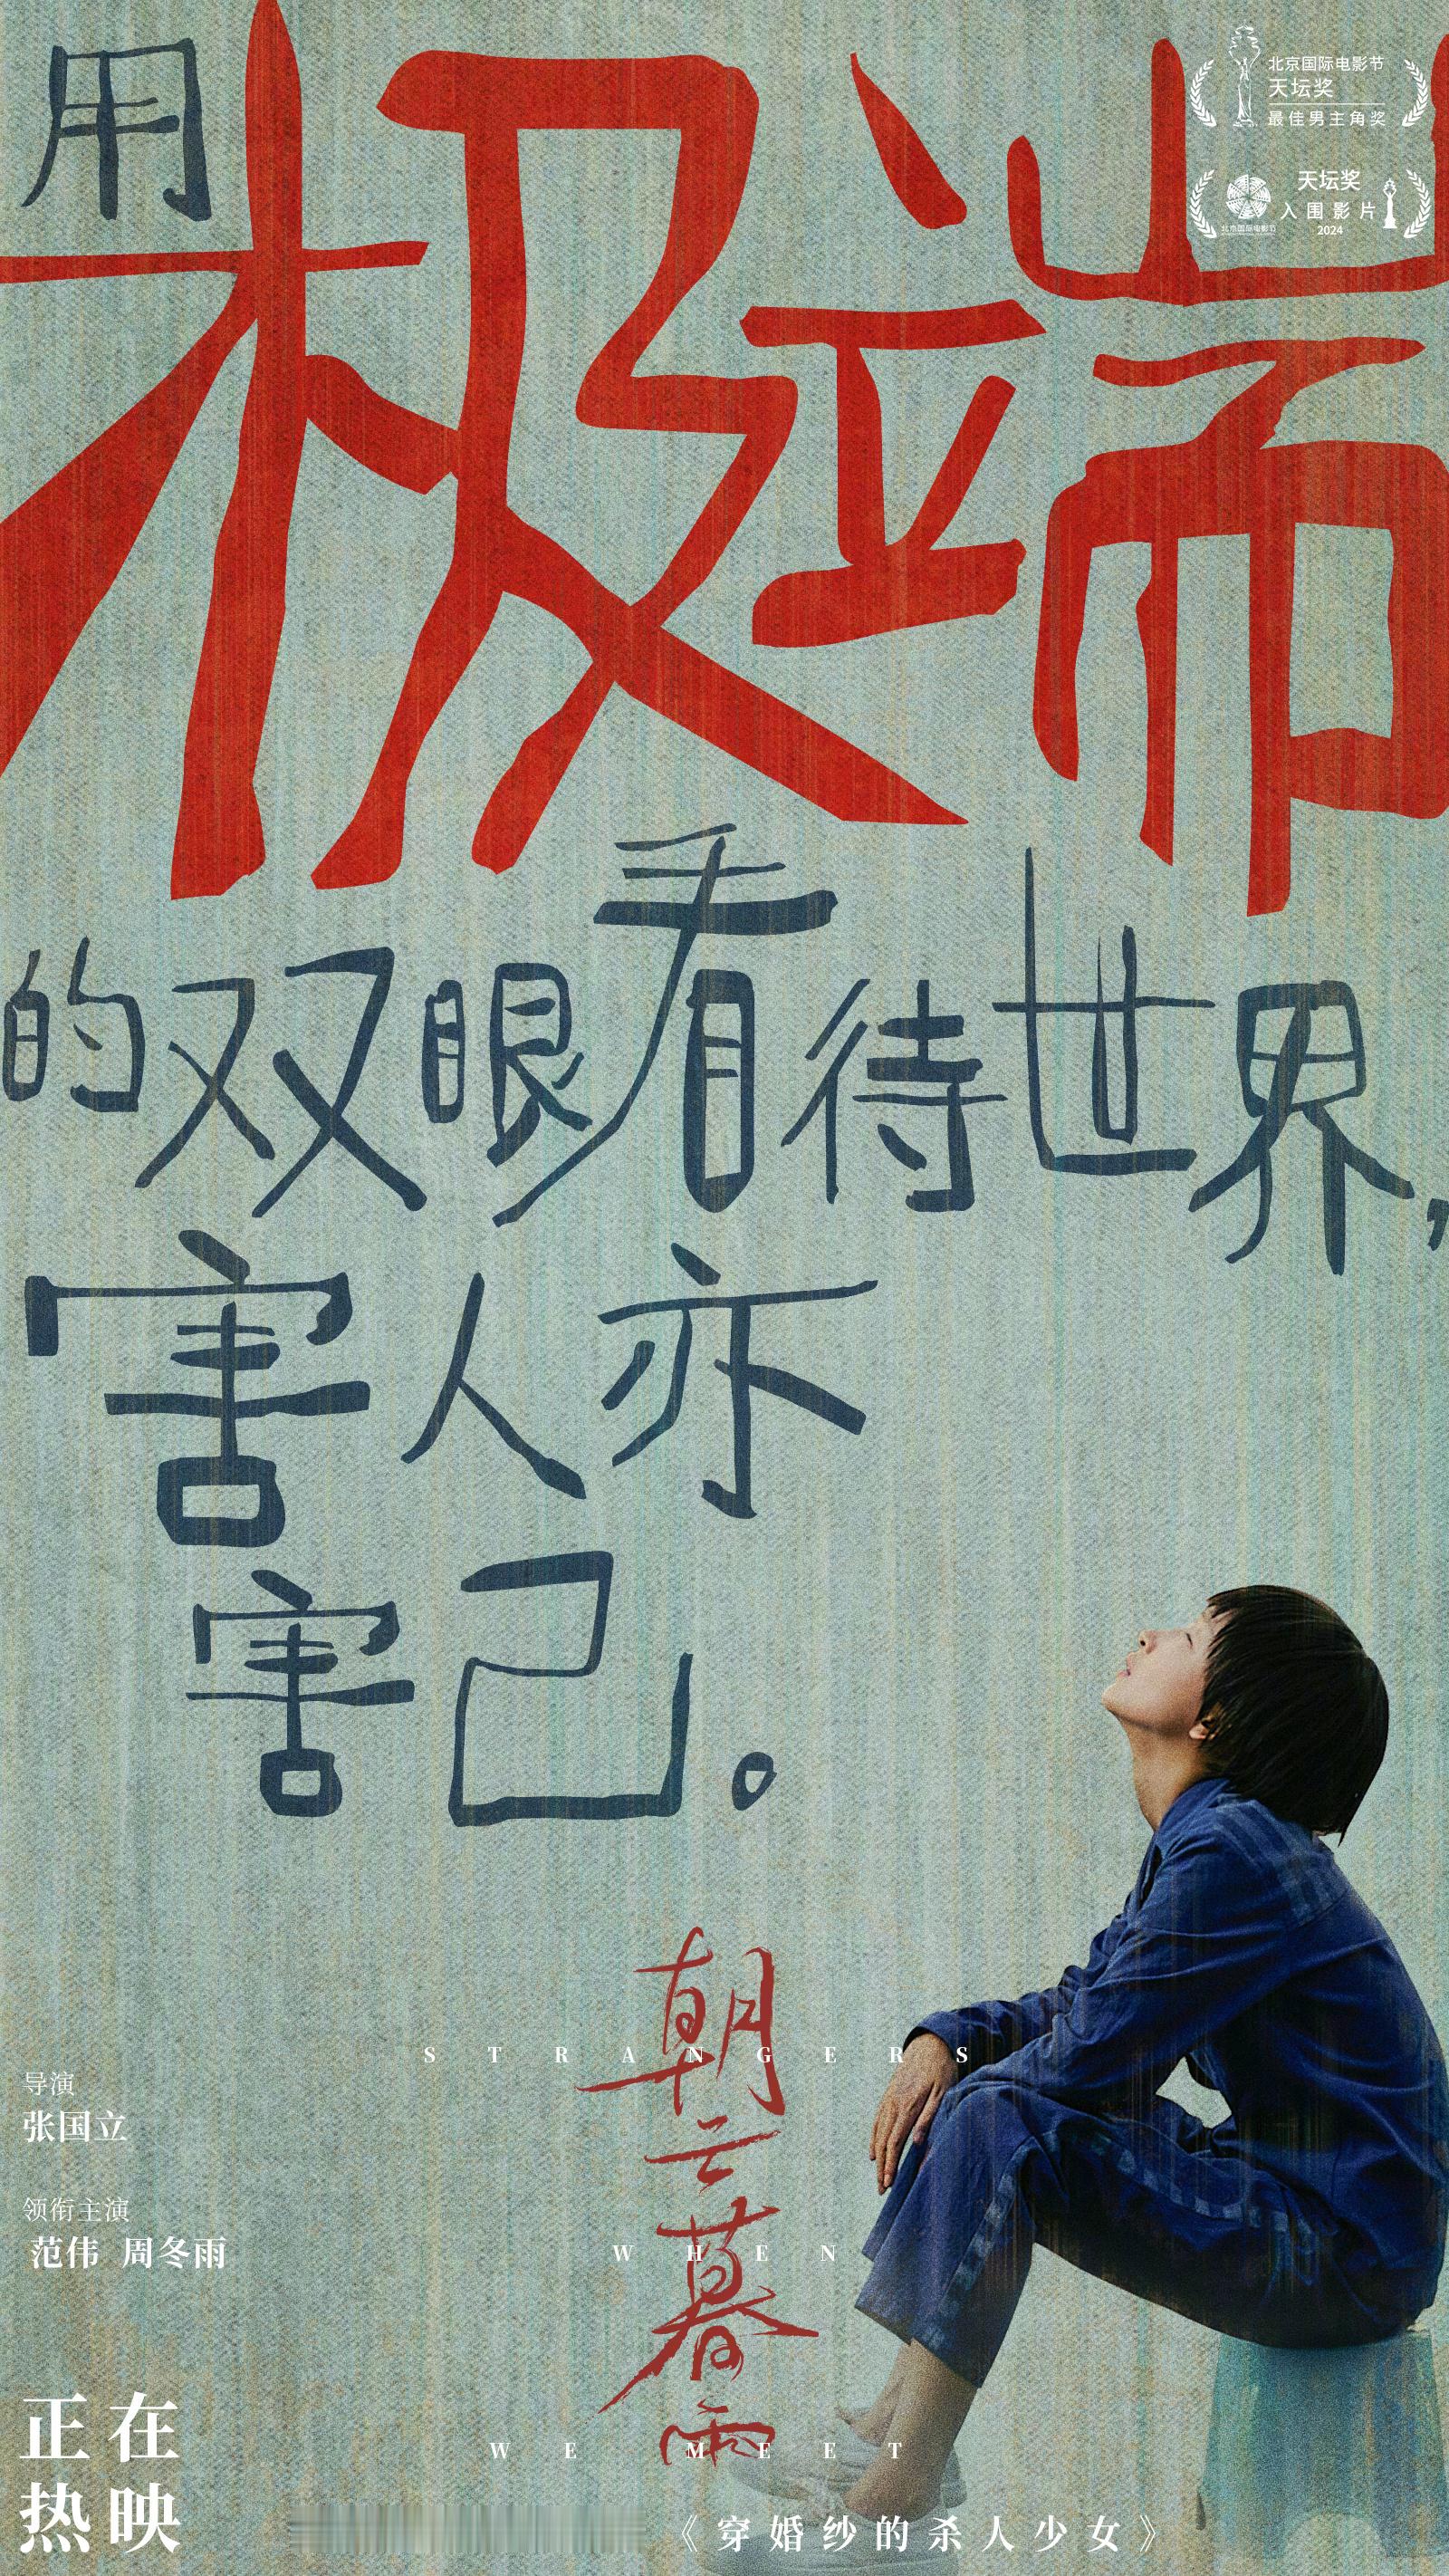 用
极端
的双眼看待世界，
害人亦
害己。
北京国际电影节
天坛奖
最佳男主角奖
天坛奖
入围影片
2024
北京国际电影节
朝云暮雨
STRANGERS
WHEN
WE MEET
导演
张国立
领衔主演
范伟 周冬雨
正在
热映
《穿婚纱的杀人少女》